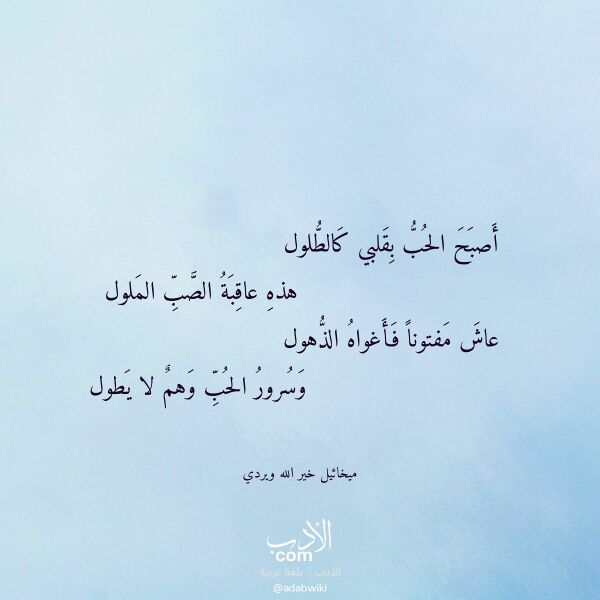 أَصبَحَ الحُبُّ بِقَلبي كَالطُّلول
هذهِ عاقِبَةُ الصَّبِّ المَلول
عاشَ مَفتوناً فَأَغواهُ الذُّهول
وَسُرورُ الحُبِّ وَهمٌ لا يَطول
ميخائيل خير الله ويردي
الأدب
com
الأدب .. بلغة عربية
@adabwiki